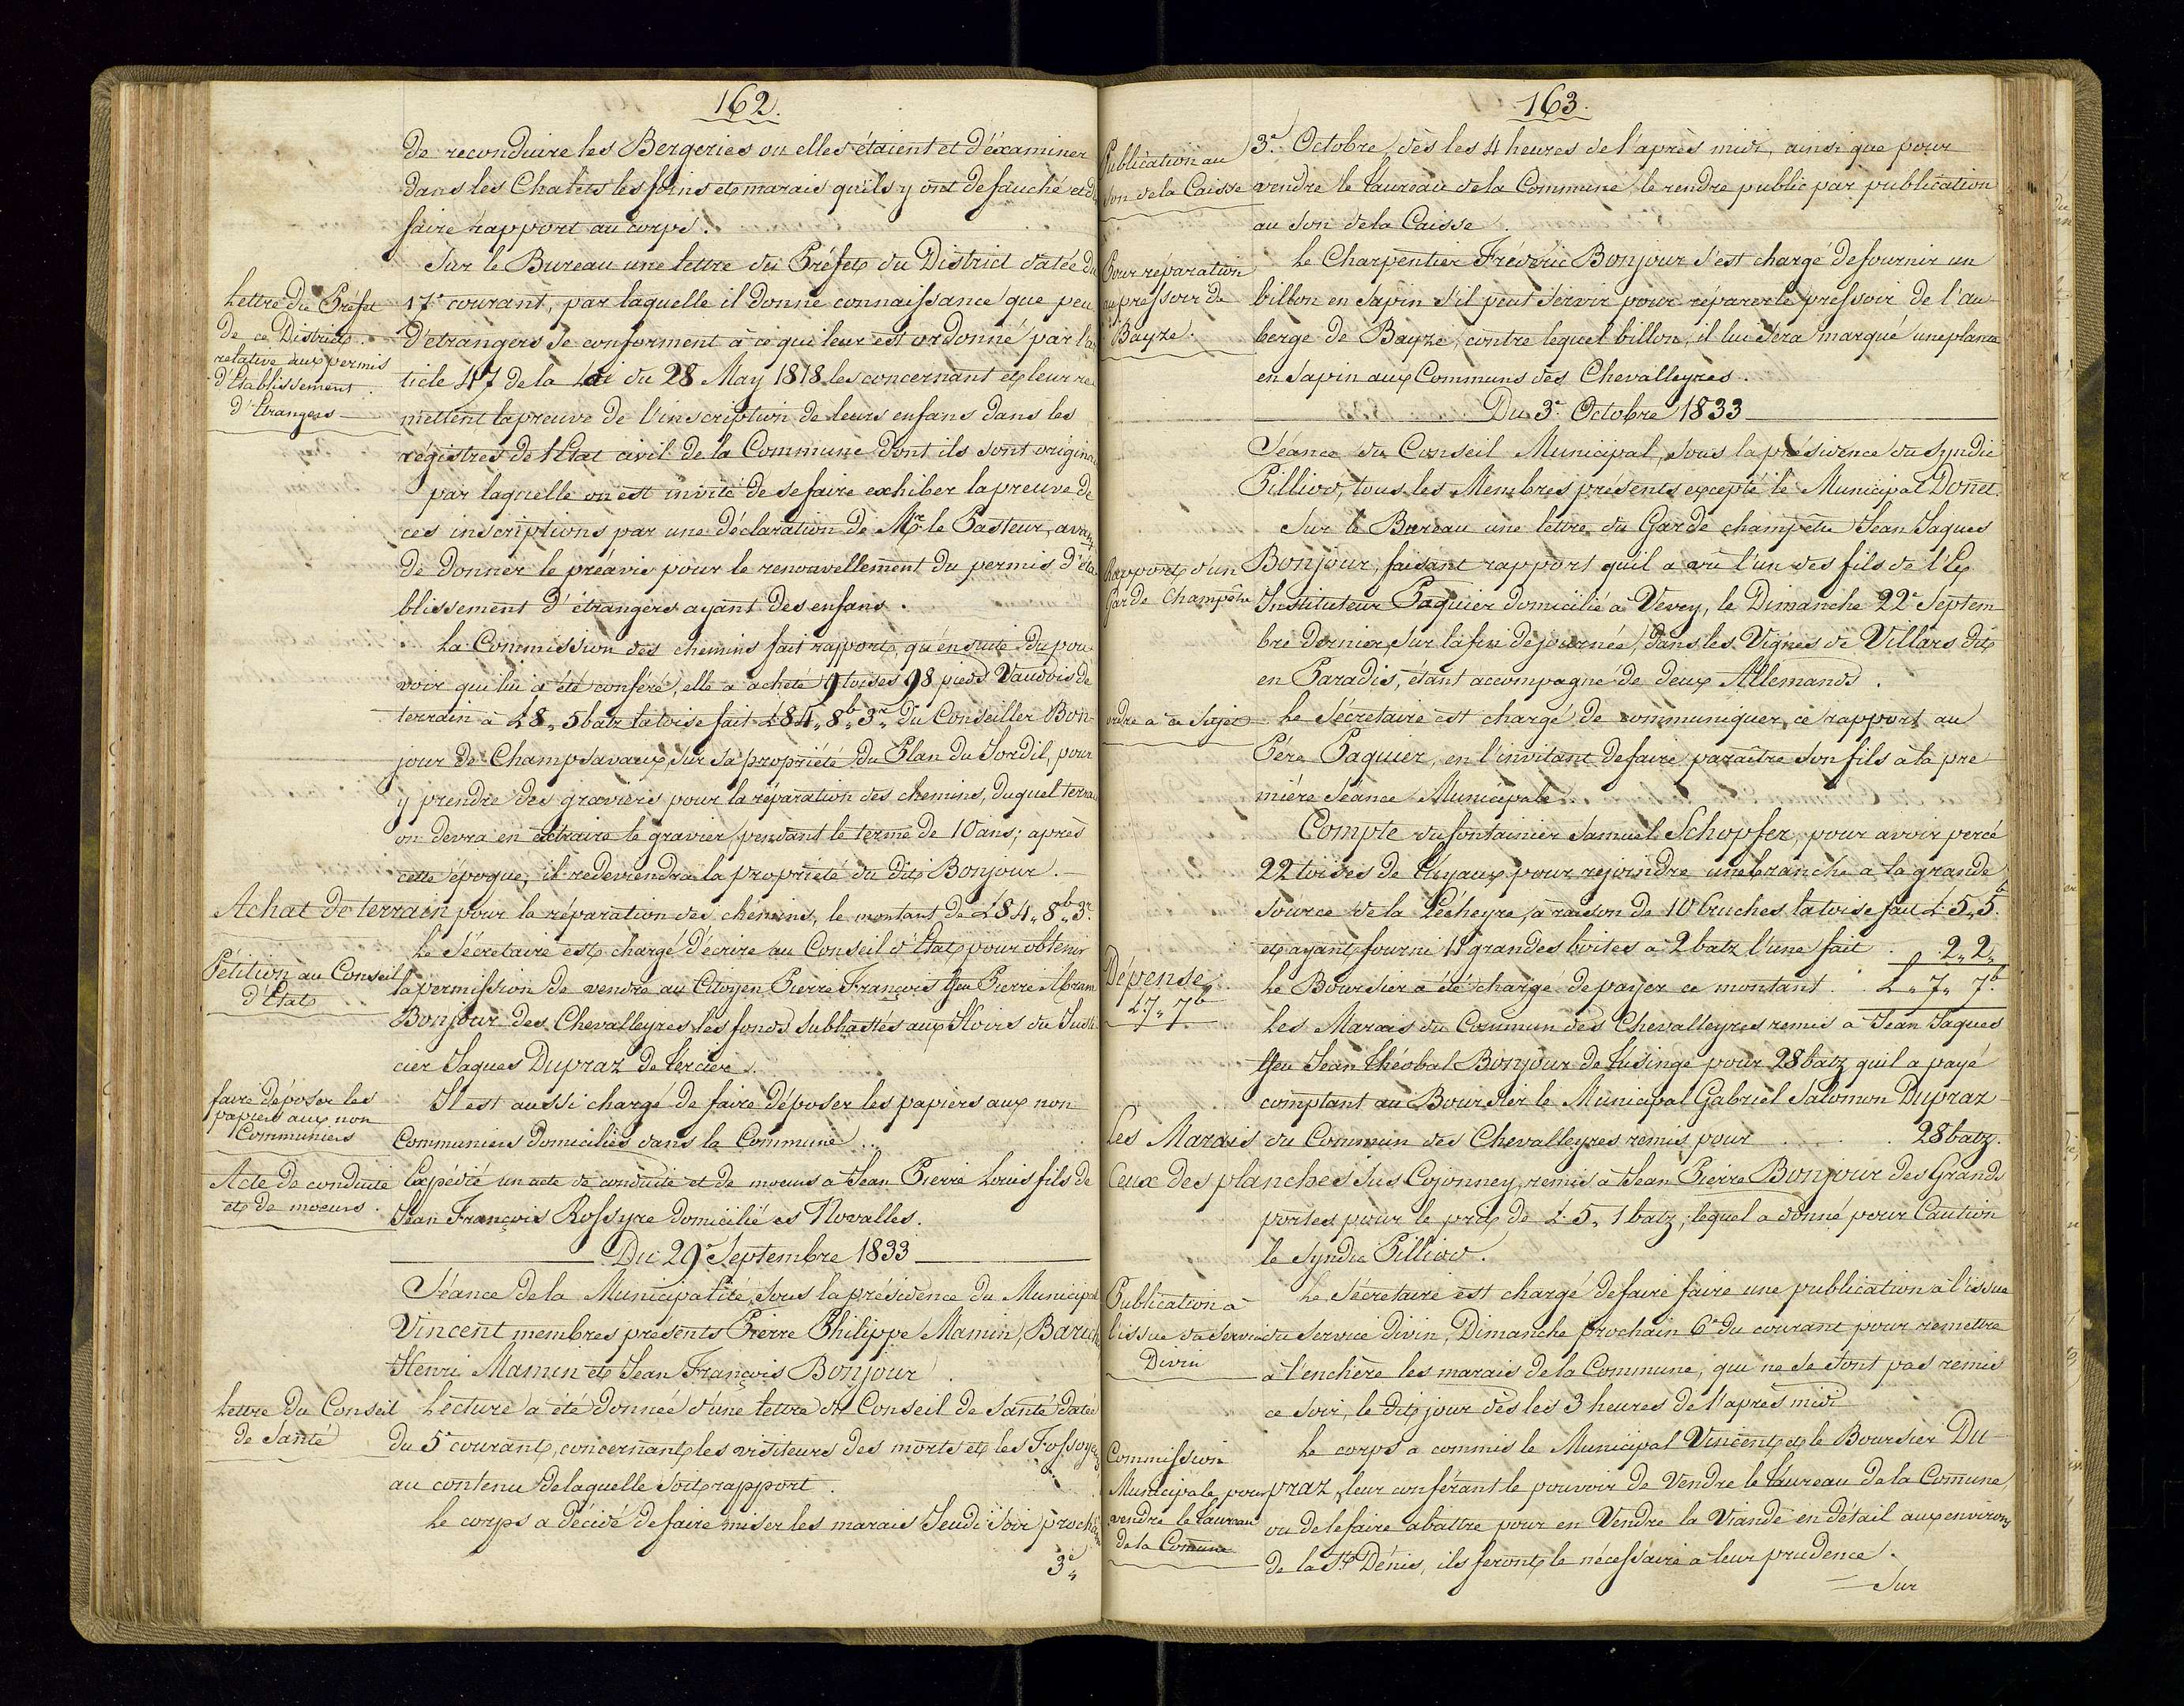 162.
de reconduire les Bergeries ou elles étaient et d'éxaminer
dans les Chalets les foins et marais qu'ils y ont de fauché et d
faire rapport au corps.
Sur le Bureau une lettre du Préfet du District datée du
Lettre du Préfet
de ce District
relative aux permis
d'établissement
d'Etrangers
17e courant, par laquelle il donne connaissance que peu
d'étrangers se conforment à ce qui leur est ordonné par l'ar
ticle 47 de la Loi du 28 May 1818 les concernant et leur re
mettent la preuve de l'inscription de leurs enfans dans les
régistres de l'Etat civil de la Commune dont ils sont origina
par laquelle on est invité de se faire exhiber la preuve de
ces inscriptions par une déclaration de Mr le Pasteur, avant
de donner le préavis pour le renouvellement du permis d'éta
blissement d'étrangers ayant des enfans.
La Commission des chemins fait rapport, qu'en suite du pou
voir qui lui a été conféré, elle a acheté 9 toises 98 pieds Vaudois de
terrain à L 8„ 5 batz la toise fait L 84„ 8b„ 3r„ du Conseiller Bon-
jour de Champsavaux, sur sa propriété du Plan du Sordil, pour
y prendre des graviers pour la réparation des chemins, duquel terrai
on devra en extraire le gravier, pendant le terme de 10 ans; après
cette époque, il redeviendra la propriété du dit Bonjour.—
Achat de terrain pour la réparation des chemins, le montant de L 84„ 8b„ 3r.
Le Sécretaire est chargé d'écrire au Conseil d'Etat pour obtenir
Pétition au Conseil
d'Etat
la permission de vendre au Citoyen Pierre François ffeu Pierre Abram
Bonjour des Chevalleyres les fonds subhastés aux Hoirs du Justi
cier Jaques Dupraz de Tercier.
faire déposer les
papiers aux non
Communiers
Il est aussi chargé de faire déposer les papiers aux non
Communiers domiciliés dans la Commune.
Acte de conduite
et de moeurs.
Expédié un acte de conduite et de moeurs à Jean Pierre Louis fils de
Jean François Rossyre domicilié ès Novalles.
Du 29e Septembre 1833
Séance de la Municipalité, sous la présidence du Municipal
Vincent membres présents Pierre Philippe Mamin, Baruch
Henri Mamin et Jean François Bonjour
Lettre du Conseil
de Santé
Lecture a été donnée d'une lettre du Conseil de Santé datée
du 5e courant, concernant les visiteurs des morts et les Fossoyeurs
au contenu de laquelle soit rapport.
Le corps a décidé de faire miser les marais Jeudi soir prochain
3e„
163.
Publication au
son de la Caisse
3e Octobre, dès les 4 heures de l'après midi, ainsi que pour
vendre le taureau de la Commune, le rendre public par publication
au son de la Caisse.
Pour réparation
au pressoir de
Bayze.
Le Charpentier Fréderic Bonjour s'est chargé de fournir un
billon en sapin s'il peut servir pour réparer le pressoir de l'au-
berge de Bayze, contre lequel billon, il lui sera marqué une plante
en sapin aux Communs des Chevalleyres.
Du 3e Octobre 1833
Séance du Conseil Municipal, sous la présidence du Syndic
Pilliod, tous les Membres présents excepté le Municipal Donet.
Sur le Bureau une lettre du Garde champêtre Jean Jaques
Rapport d'un
Garde Champêtre
Bonjour, faisant rapport qu'il a vu l'un des fils de l'Ex
Instituteur Paquier domicilié à Vevey, le Dimanche 22e Septem
bre dernier sur la fin de journée, dans les Vignes de Villars dit
en Paradis, étant accompagné de deux Allemands.
ordre à ce sujet
Le Sécretaire est chargé de communiquer ce rapport au
Père Paquier, en l'invitant de faire paraître son fils à la pre-
mière séance Municipale.
Compte du fontainier Samuel Schopfer, pour avoir percé
22 toises de tuyaux pour rejoindre une branche à la grande
source de la Pécheyre, à raison de 10 Cruches la toise fait L 5„ 5b.
et ayant fourni 11 grandes boites à 2 batz l'une fait . 2„ 2„
Dépense
L 7„ 7b
Le Boursier a été chargé de payer ce montant . . L „ 7„ 7b
Les Marais du Commun des Chevalleyres remis à Jean Jaques
ffeu Jean Théobal Bonjour de Tusinge pour 28 batz qu'il a payé
comptant au Boursier le Municipal Gabriel Salomon Dupraz
Les Marais du Commun des Chevalleyres remis pour . . . 28 batz.
Ceux des planches sus Cojonney, remis à Jean Pierre Bonjour des Grands
portes pour le prix de L 5„ 1 batz, lequel a donné pour Caution
le Syndic Pilliod.
Publication à
l'issue du service
Divin
Le Sécretaire est chargé de faire faire une publication à l'issue
du service divin, Dimanche prochain 6e du courant pour remettre
à l'enchère les marais de la Commune, qui ne se sont pas remis
ce soir, le dit jour dès les 3 heures de l'après midi
Commission
Municipale pour
vendre le taureau
de la Comune
Le corps a commis le Municipal Vincent et le Boursier Du-
praz, leur conférant le pouvoir de vendre le taureau de la Comune,
ou de le faire abattre pour en Vendre la Viande en détail aux environs
de la St Dénis, ils feront le nécessaire à leur prudence.
— Sur